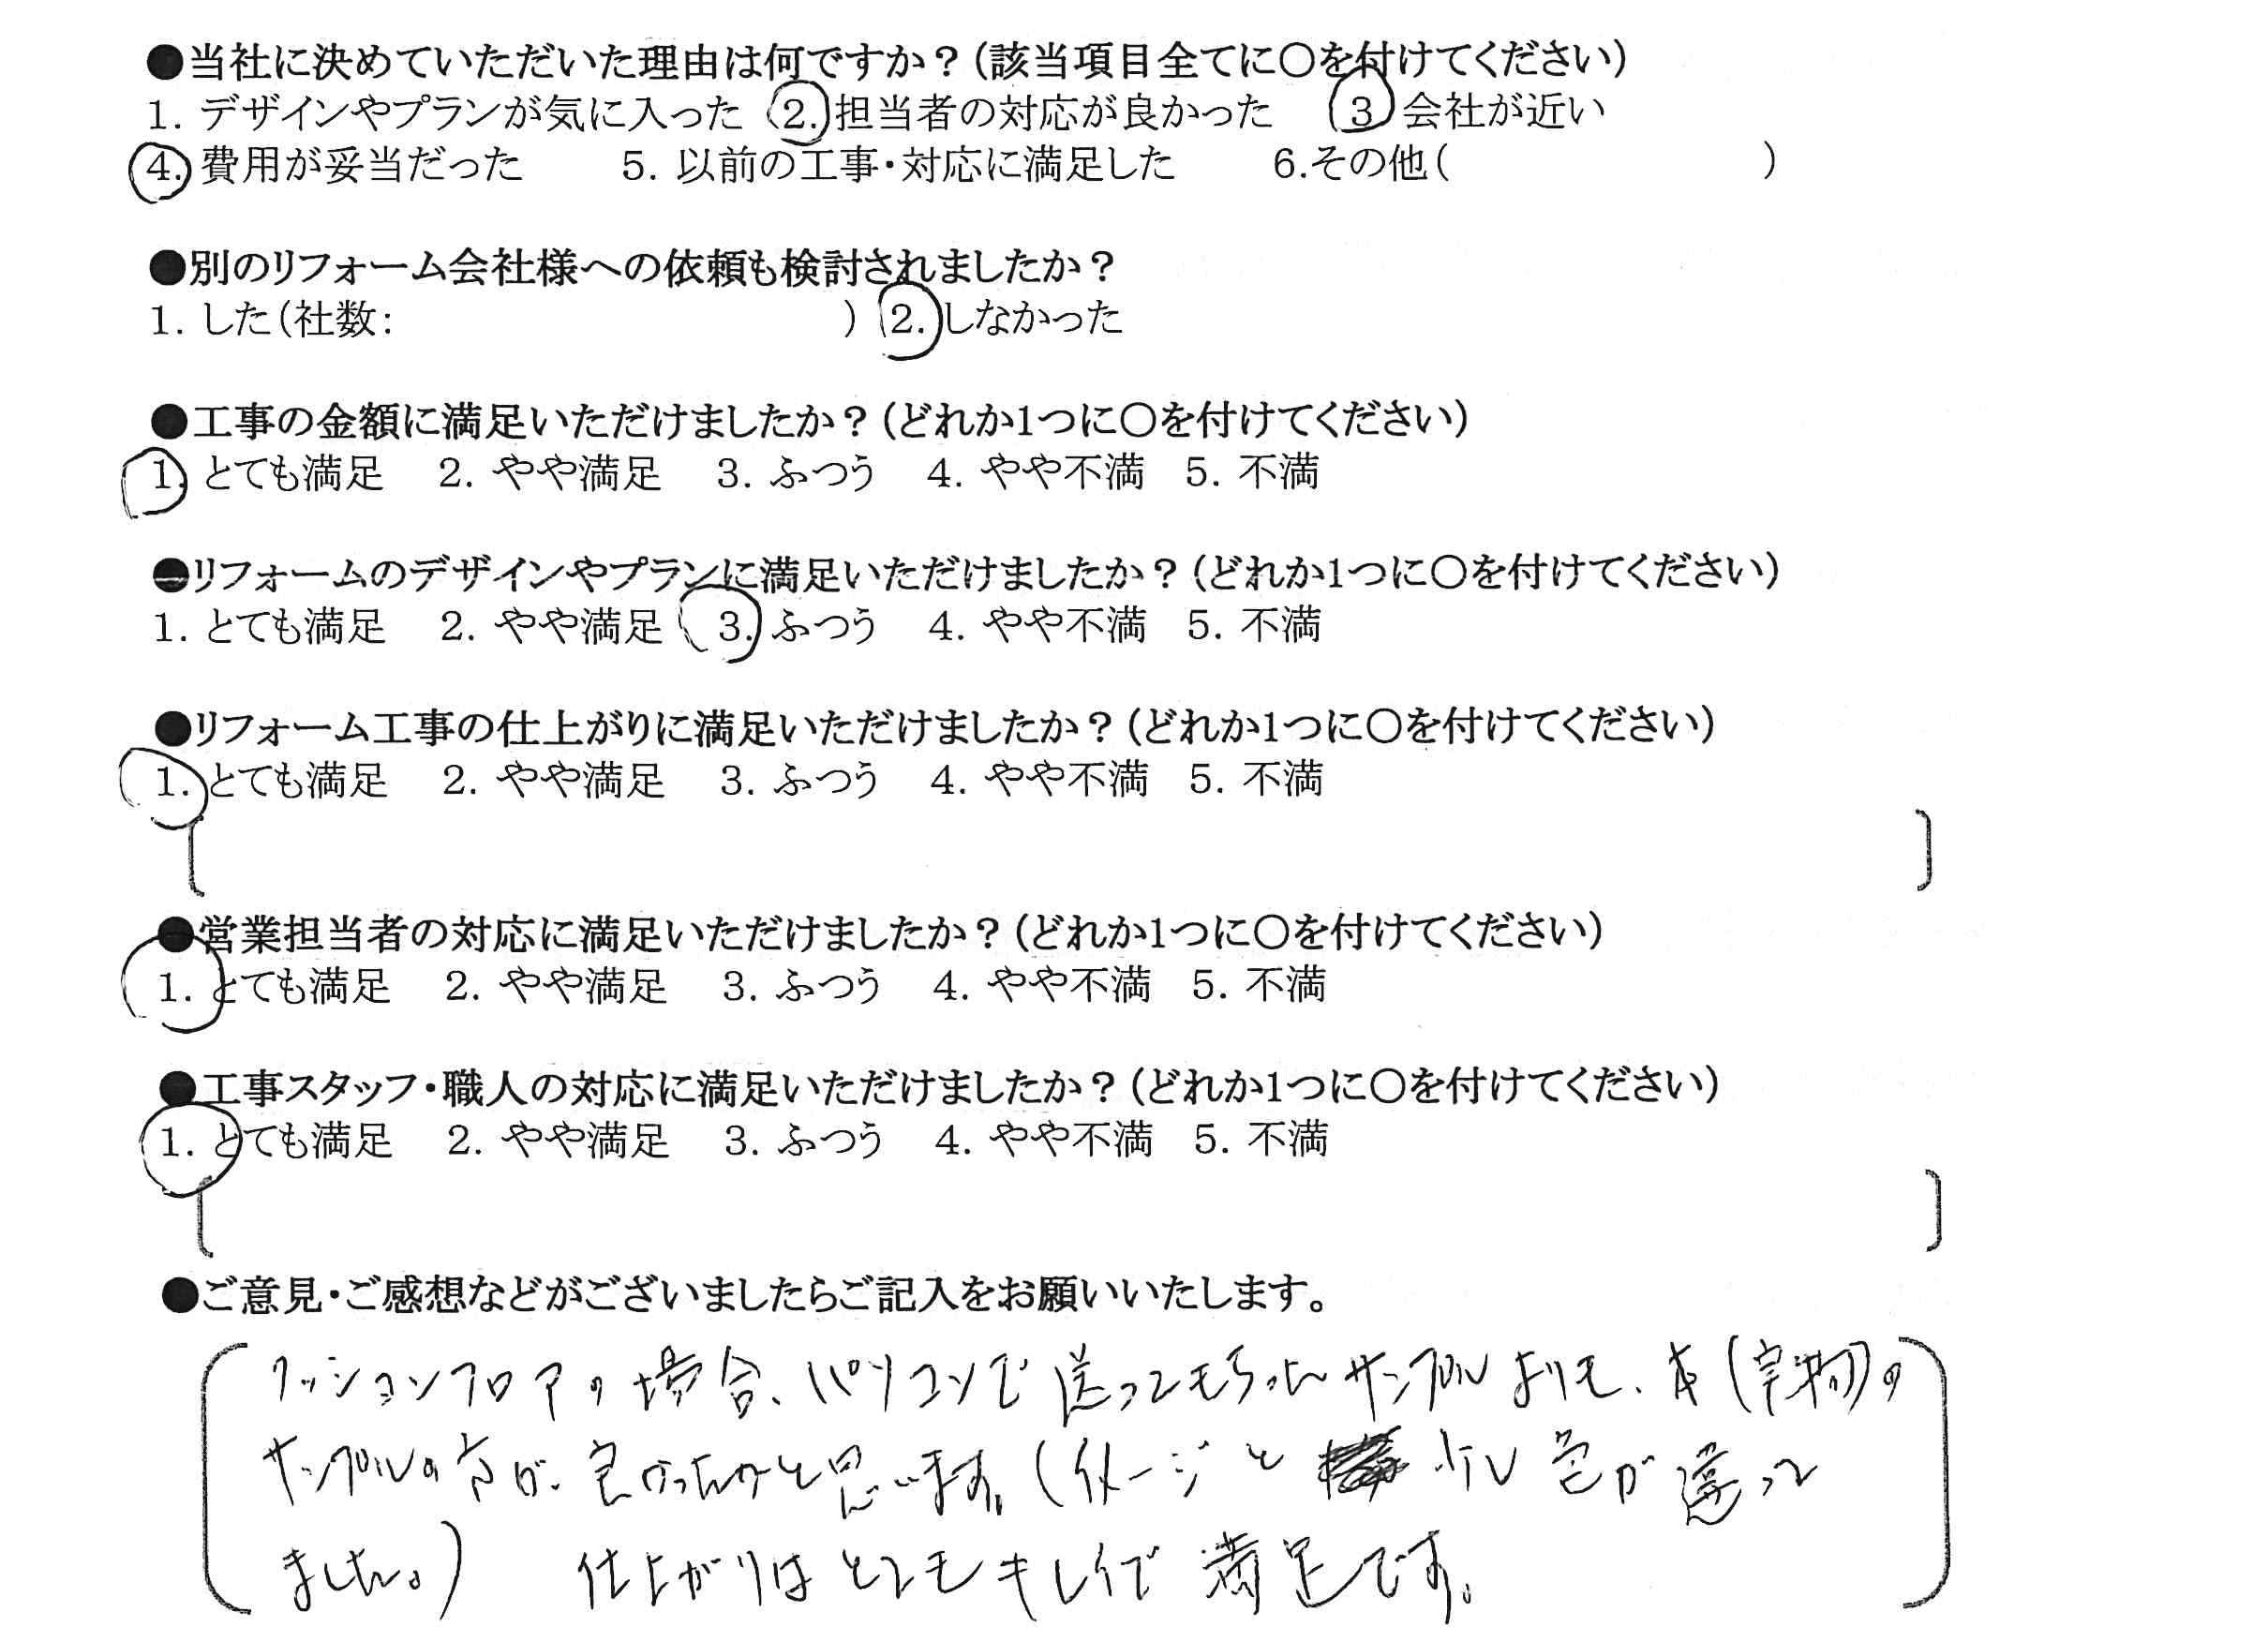 ●当社に決めていただいた理由は何ですか？（該当項目全てに〇を付けてください）
1. デザインやプランが気に入った 2. 担当者の対応が良かった 3 会社が近い
4. 費用が妥当だった 5. 以前の工事・対応に満足した 6.その他（ ）
●別のリフォーム会社様への依頼も検討されましたか？
1. した（社数： ） 2. しなかった
●工事の金額に満足いただけましたか？（どれか1つに〇を付けてください）
1. とても満足 2. やや満足 3. ふつう 4. やや不満 5. 不満
●リフォームのデザインやプランに満足いただけましたか？（どれか1つに〇を付けてください）
1. とても満足 2. やや満足 3. ふつう 4. やや不満 5. 不満
●リフォーム工事の仕上がりに満足いただけましたか？（どれか1つに〇を付けてください）
1. とても満足 2. やや満足 3. ふつう 4. やや不満 5. 不満
●営業担当者の対応に満足いただけましたか？（どれか1つに〇を付けてください）
1. とても満足 2. やや満足 3. ふつう 4. やや不満 5. 不満
●工事スタッフ・職人の対応に満足いただけましたか？（どれか1つに〇を付けてください）
1. とても満足 2. やや満足 3. ふつう 4. やや不満 5. 不満
●ご意見・ご感想などがございましたらご記入をお願いいたします。
クッションフロアの場合、パソコンで送ってもらったサンプルよりも、本（実物）の
サンプルの方が、良かったかと思います。（イメージと 少し色が違って
ました。） 仕上がりはとてもキレイで満足です。